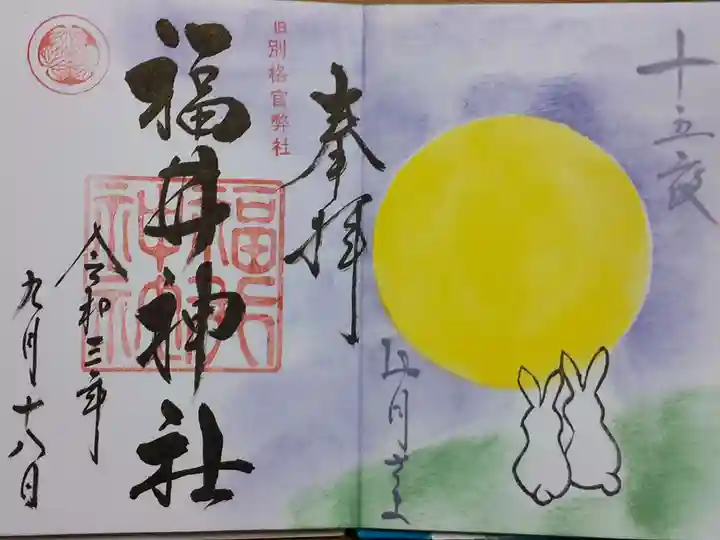 十五夜
お月さま
奉拝
旧別格官幣社
福井神社
福井神社
令和三年
九月十八日